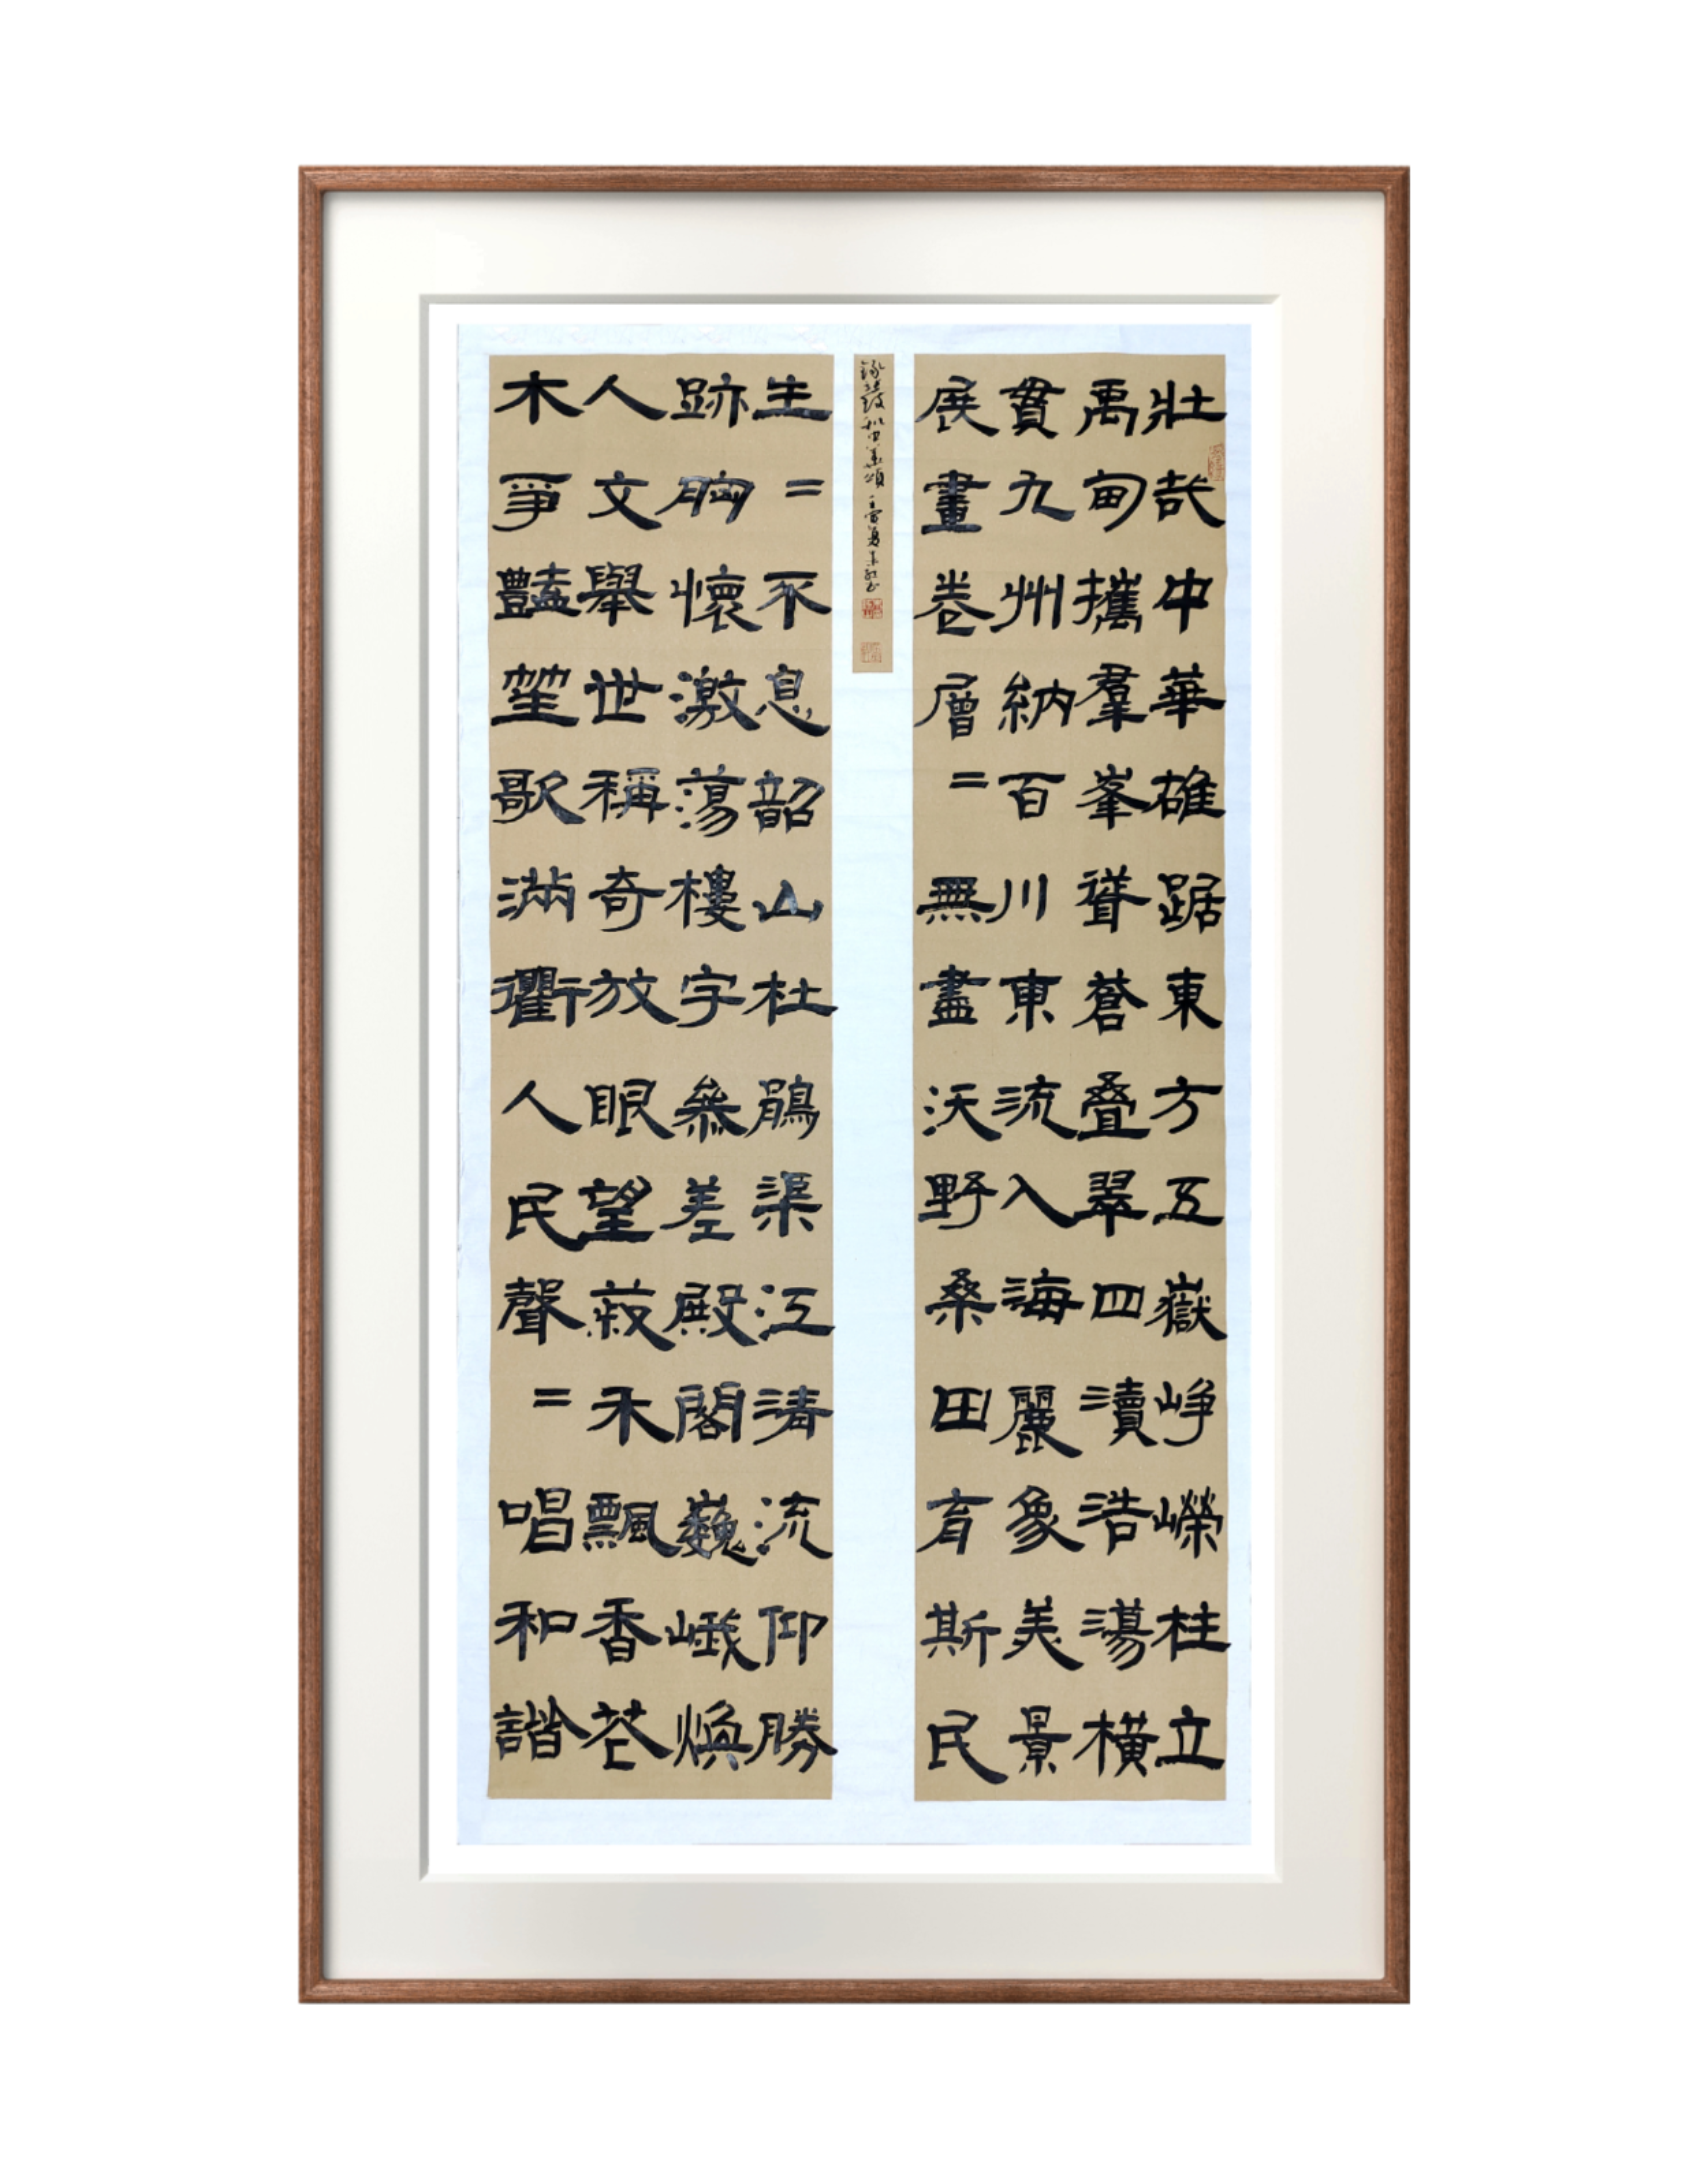 壯哉中華雄踞東方五嶽崢嶸柱立
禹甸攜羣峯聳蒼叠翠四瀆浩蕩橫
貫九州納百川東流入海麗象美景
展畫卷層=無盡沃野桑田育斯民
生=不息韶山杜鵑渠江清流仰勝
跡胸懷激蕩樓宇參差殿閣巍峨煥
人文舉世稱奇放眼望菽禾飄香花
木爭豔笙歌滿衢人民聲=唱和諧